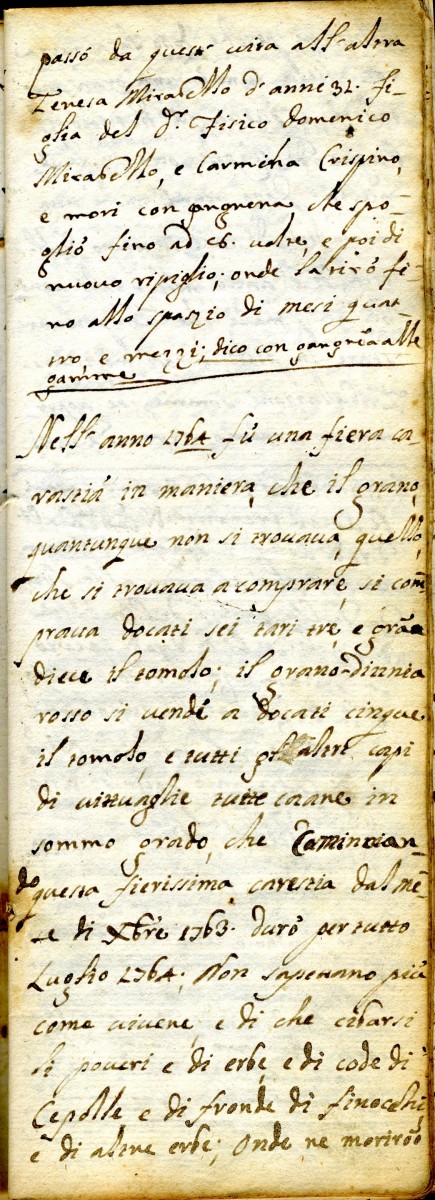 passò da questa vita all'altra
Teresa Mirabello d'anni 32. fi-
glia del Dr. Fisico Domenico
Mirabello, e Carmina Crispino,
e morì con gngrena, che spo-
gliò fino ad 26. volte, e poi di
nuovo ripigliò; onde la tirò fi-
no allo spazio di mesi quat-
tro, e mezzi; dico con gangrẽa alle
gamme
Nell'anno 1764 fù una fiera ca-
rastia in maniera, che il grano,
quantunque non si trovava, quello,
che si trovava a comprare, si com̃
prava docati sei tarì trè, e grãa
diece il tomolo; il grano-dinnia
rosso si vendè a docati cinque
il tomolo, e tutti gl'altri capi
di vittuaglie tutte carane in
sommo grado, che Caminnian-
do questa fierissima carestia dal mẽ-
se di Xbre 1763. durò per tutto
Luglio 1764; Non sapevano più
come vivere, e di che cibarsi
li poveri e di erbe, e di code di
Cepolle e di fronde di finocchi,
e di altre erbe; Onde ne morirõo